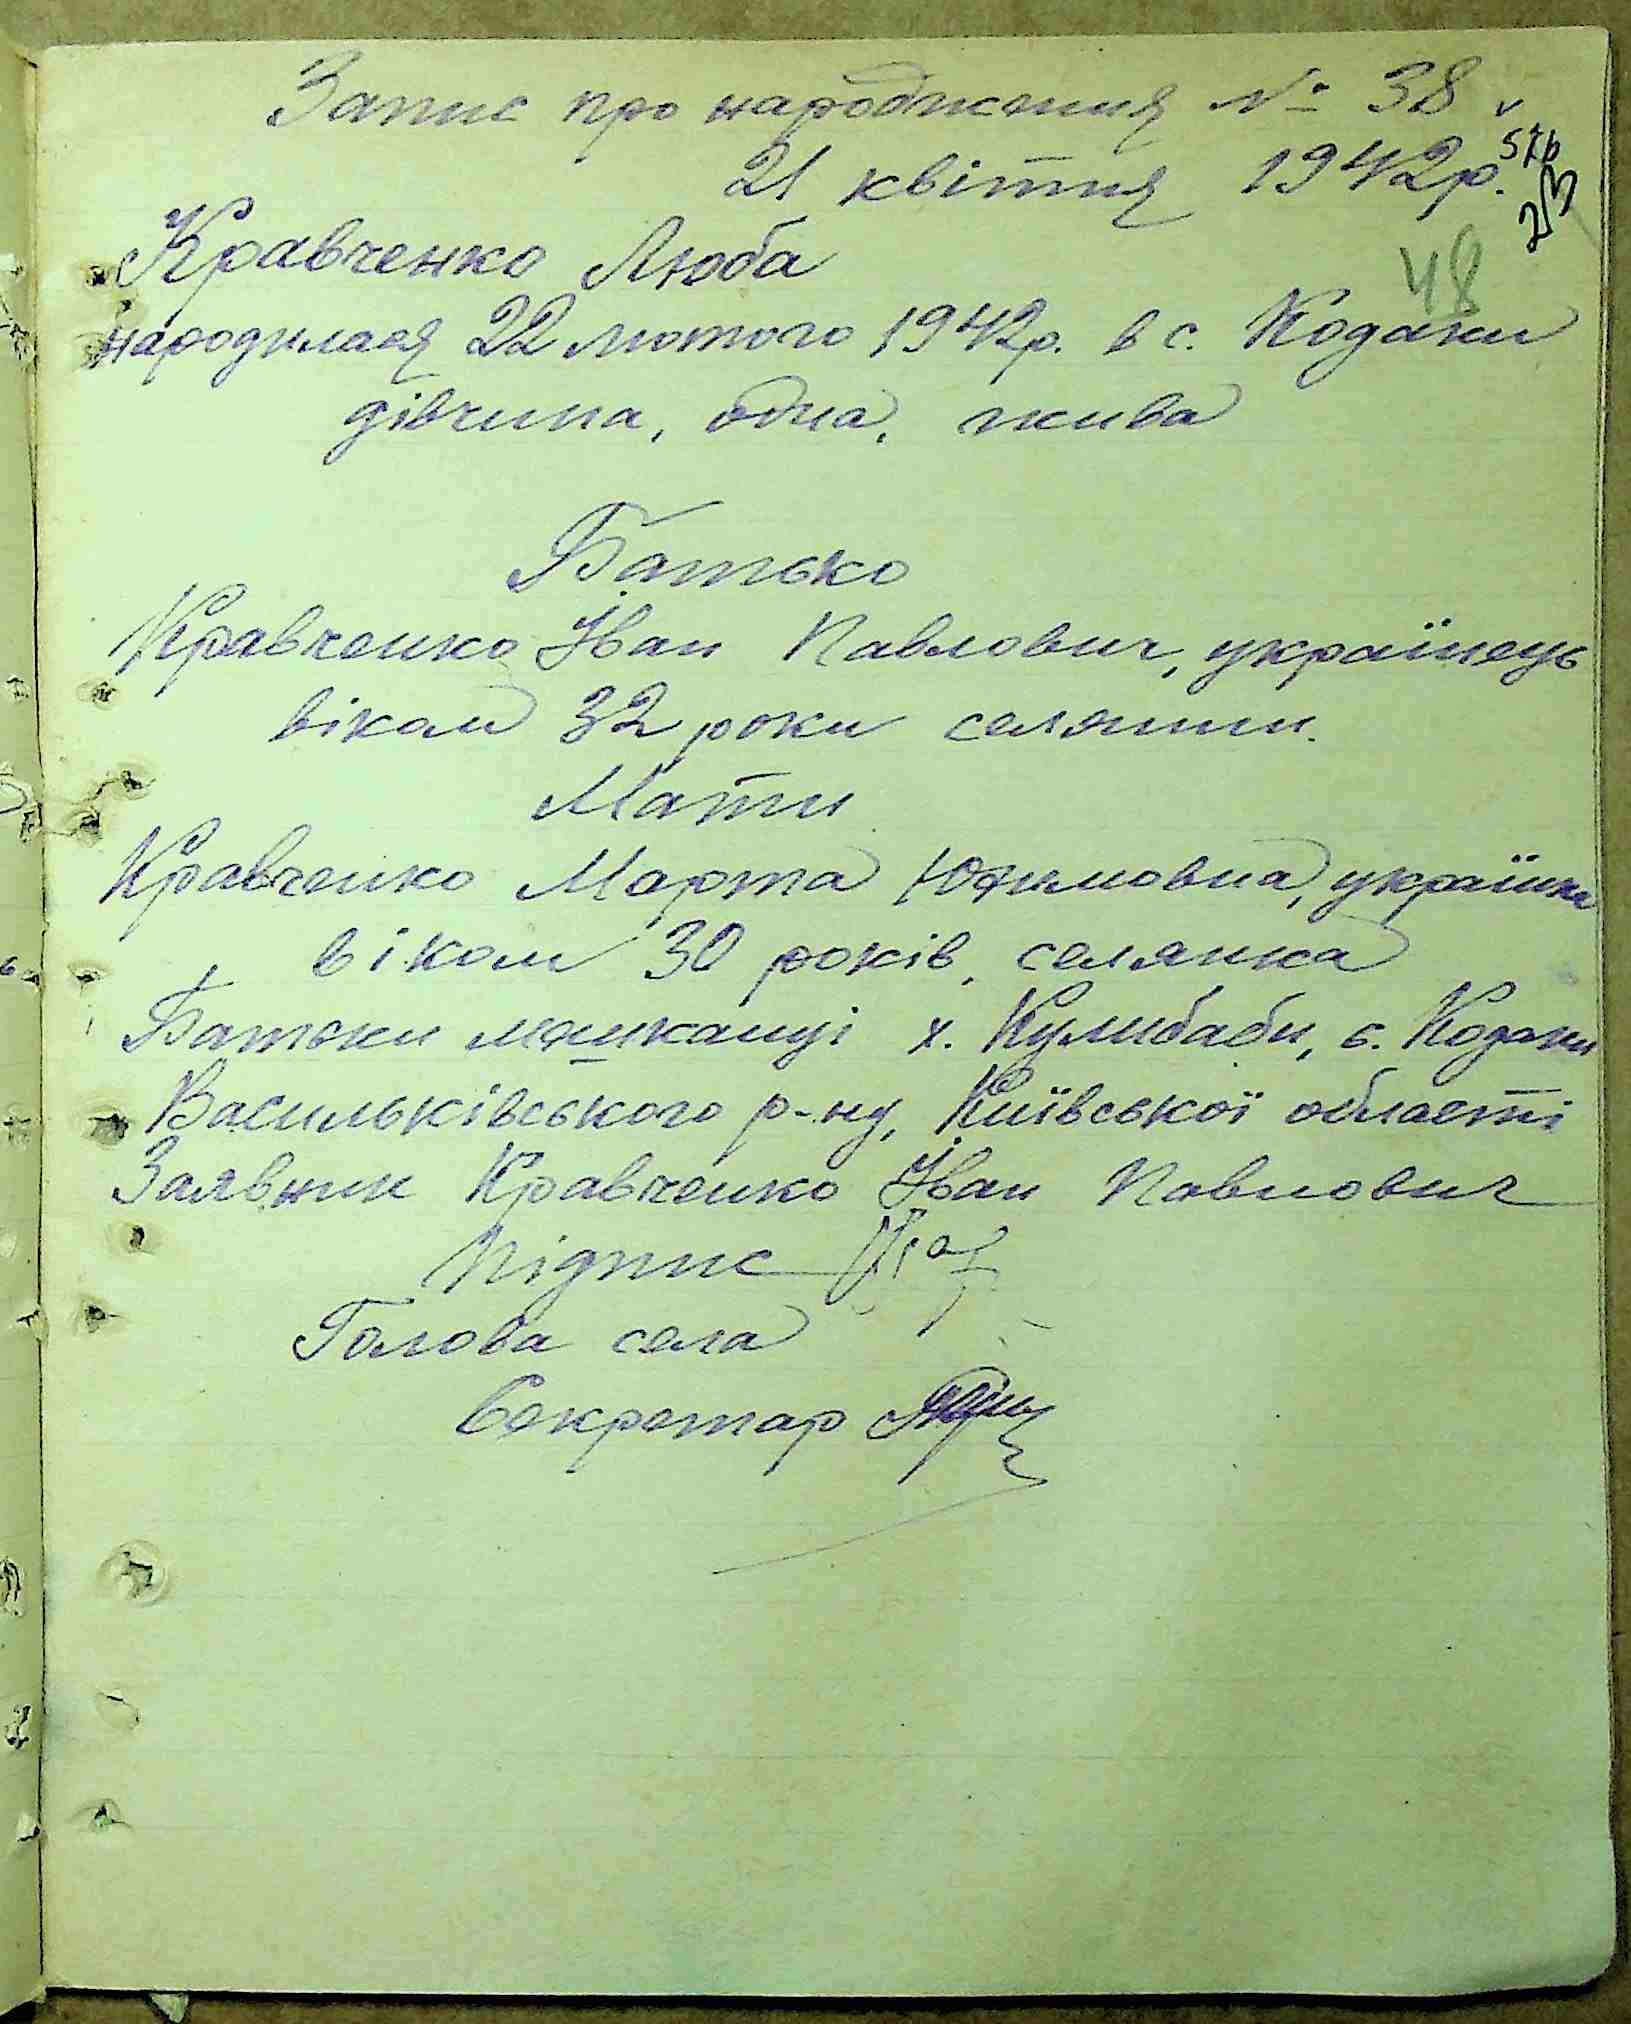 Запис про народження № 38
21 квітня 1942р.
48
Кравченко Люба
народилася 22 лютого 1942р. в с. Кодаки
дівчина, одна, жива
Батько
Кравченко Іван Павлович, українець
віком 32 роки селянин.
Мати
Кравченко Марта Юхимовна, українка
віком 30 років, селянка
Батьки мешканці х. Кулибаби, с. Кодаки
Васильківського р-ну, Київської області
Заявник Кравченко Іван Павлович
Підпис
Голова села
Секретар